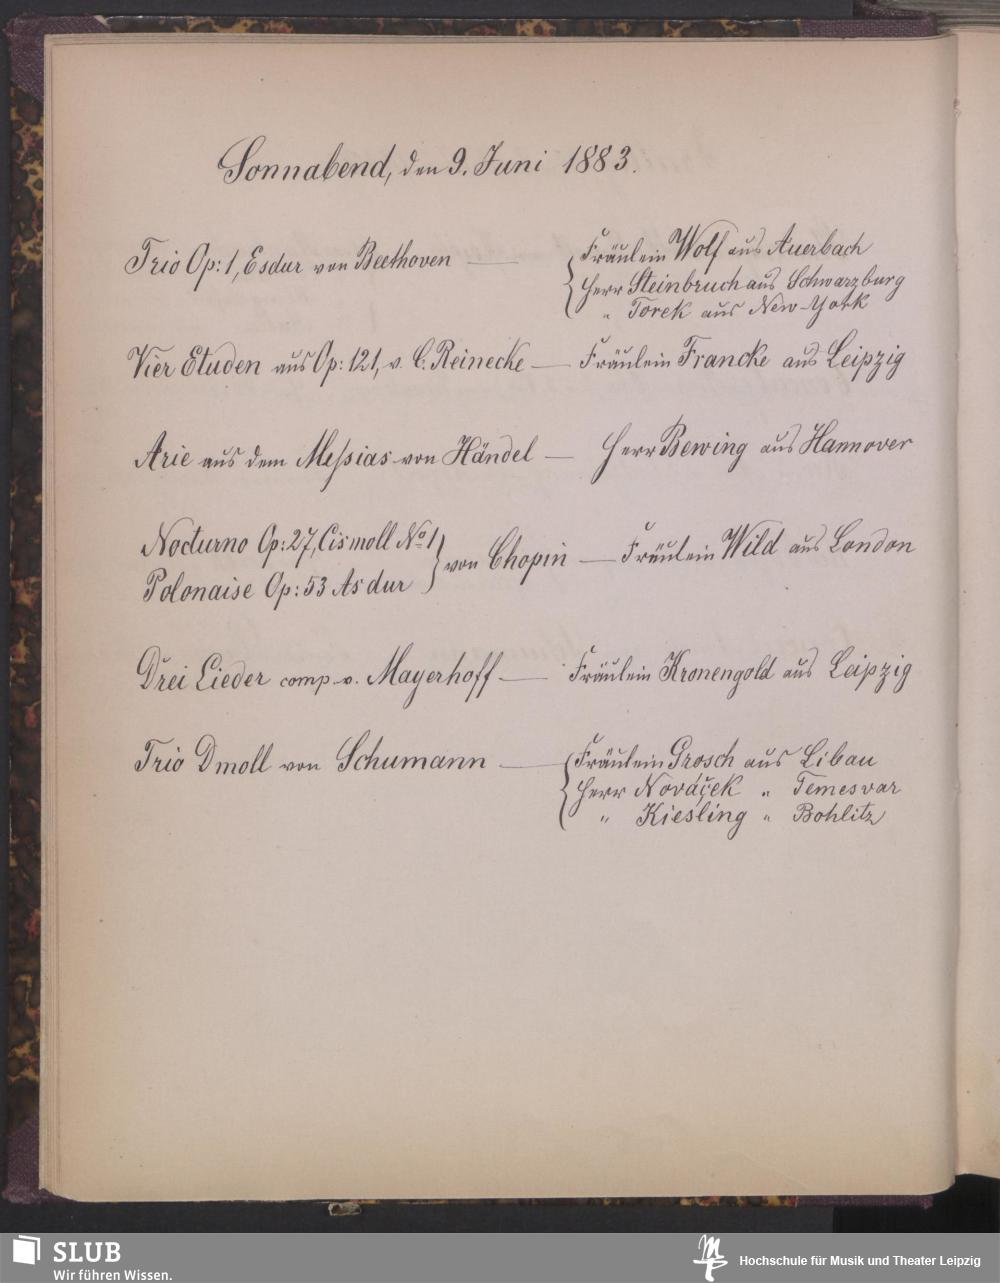 Sonnabend, den 9. Juni 1883.
Trio Op: 1, Esdur von Beethoven — Fräulein Wolf aus Auerbach
Herr Steinbruch aus Schwarzburg
" Torek aus New-York
Vier Etuden aus Op: 121, v. C. Reinecke — Fräulein Francke aus Leipzig
Arie aus dem Messias von Händel — Herr Bewing aus Hannover
Nocturno Op: 27, Cismoll No 1
Polonaise Op: 53 As dur } von Chopin — Fräulein Wild aus London
Drei Lieder comp. v. Mayerhoff — Fräulein Kronengold aus Leipzig
Trio Dmoll von Schumann — Fräulein Grosch aus Libau
Herr Nováček " Temesvar
" Kiesling " Bohlitz
SLUB
Wir führen Wissen.
Hochschule für Musik und Theater Leipzig